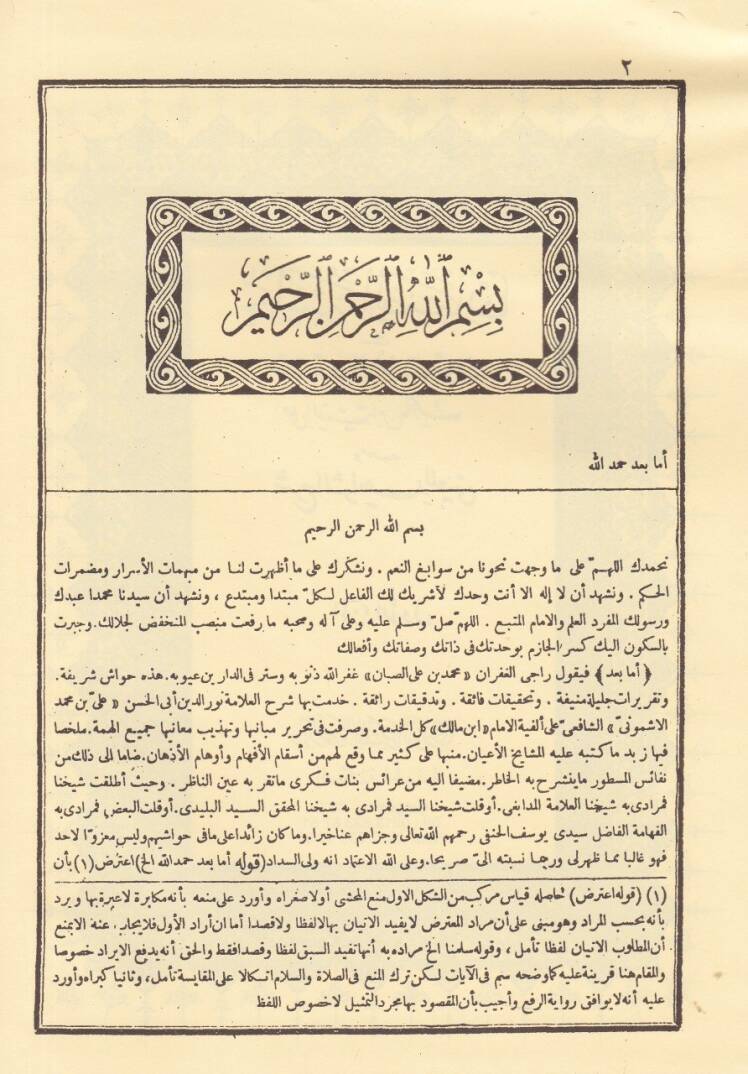 ٢
بِسْمِ اللهِ الرَّحْمٰنِ الرَّحِيمِ
أما بعد حمد الله
بسم الله الرحمن الرحيم
نحمدك اللهمّ على ما وجهت نحونا من سوابغ النعم . ونشكرك على ما أظهرت لنا من مبهمات الأسرار ومضمرات
الحكم . ونشهد أن لا إله الا أنت وحدك لاشريك لك الفاعل لكلّ مبتدا ومبتدع ، ونشهد أن سيدنا محمدا عبدك
ورسولك المفرد العلم والامام المتبع . اللهمّ صلّ وسلم عليه وعلى آله وصحبه ما رفعت منصب المنخفض لجلالك. وجبرت
بالسكون اليك كسر الجازم بوحدتك فى ذاتك وصفاتك وأفعالك
﴿أما بعد﴾ فيقول راجى الغفران «محمد بن على الصبان» غفر الله ذنوبه وستر فى الدارين عيوبه. هذه حواش شريفة.
وتقريرات جليلة منيفة . وتحقيقات فائقة . وتدقيقات رائقة . خدمت بها شرح العلامة نور الدين أبى الحسن «علىّ بن محمد
الاشمونىّ» الشافعىّ على ألفية الامام «ابن مالك» كل الخدمة. وصرفت فى تحرير مبانيها وتهذيب معانيها جميع الهمة. ملخصا
فيها زبد ما كتبه عليه المشايخ الأعيان. منبها على كثير مما وقع لهم من أسقام الأفهام وأوهام الأذهان. ضاما الى ذلك من
نفائس المسطور ما ينشرح به الخاطر. مضيفا اليه من عرائس بنات فكرى ماتقر به عين الناظر . وحيث أطلقت شيخنا
فمرادى به شيخنا العلامة المدابغى. أو قلت شيخنا السيد فمرادى به شيخنا المحقق السيد البليدى. أو قلت البعض فمرادى به
الفهامة الفاضل سيدى يوسف الحفنى رحمهم الله تعالى وجزاهم عنا خيرا. وما كان زائدا على مافى حواشيهم وليس معزوّا لاحد
فهو غالبا مما ظهر لى وربما نسبته الىّ صريحا. وعلى الله الاعتماد انه ولى السداد (قوله أما بعد حمد الله الخ) اعترض (١) بأن
(١) (قوله اعترض) حاصله قياس مركب من الشكل الاول منع المحشى أولا صغراه وأورد على منعه بأنه مكابرة لاعبرة بها ويرد
بأنه بحسب المراد وهو مبنى على أن مراد المعترض لايفيد الاتيان بها لالفظا ولا قصدا أما ان أراد الأول فلا يجاب عنه الا بمنع
أن المطلوب الاتيان لفظا تأمل ، وقوله سلمنا الخ مراده به أنها تفيد السبق لفظا وقصدا فقط والحق أنه يدفع الايراد خصوصا
والمقام هنا قرينة عليه كما وضحه سم فى الآيات لكن ترك المنع فى الصلاة والسلام اتكالا على المقايسة تأمل، وثانيا كبراه وأورد
عليه أنه لا يوافق رواية الرفع وأجيب بأن المقصود بها مجرد التمثيل لاخصوص اللفظ